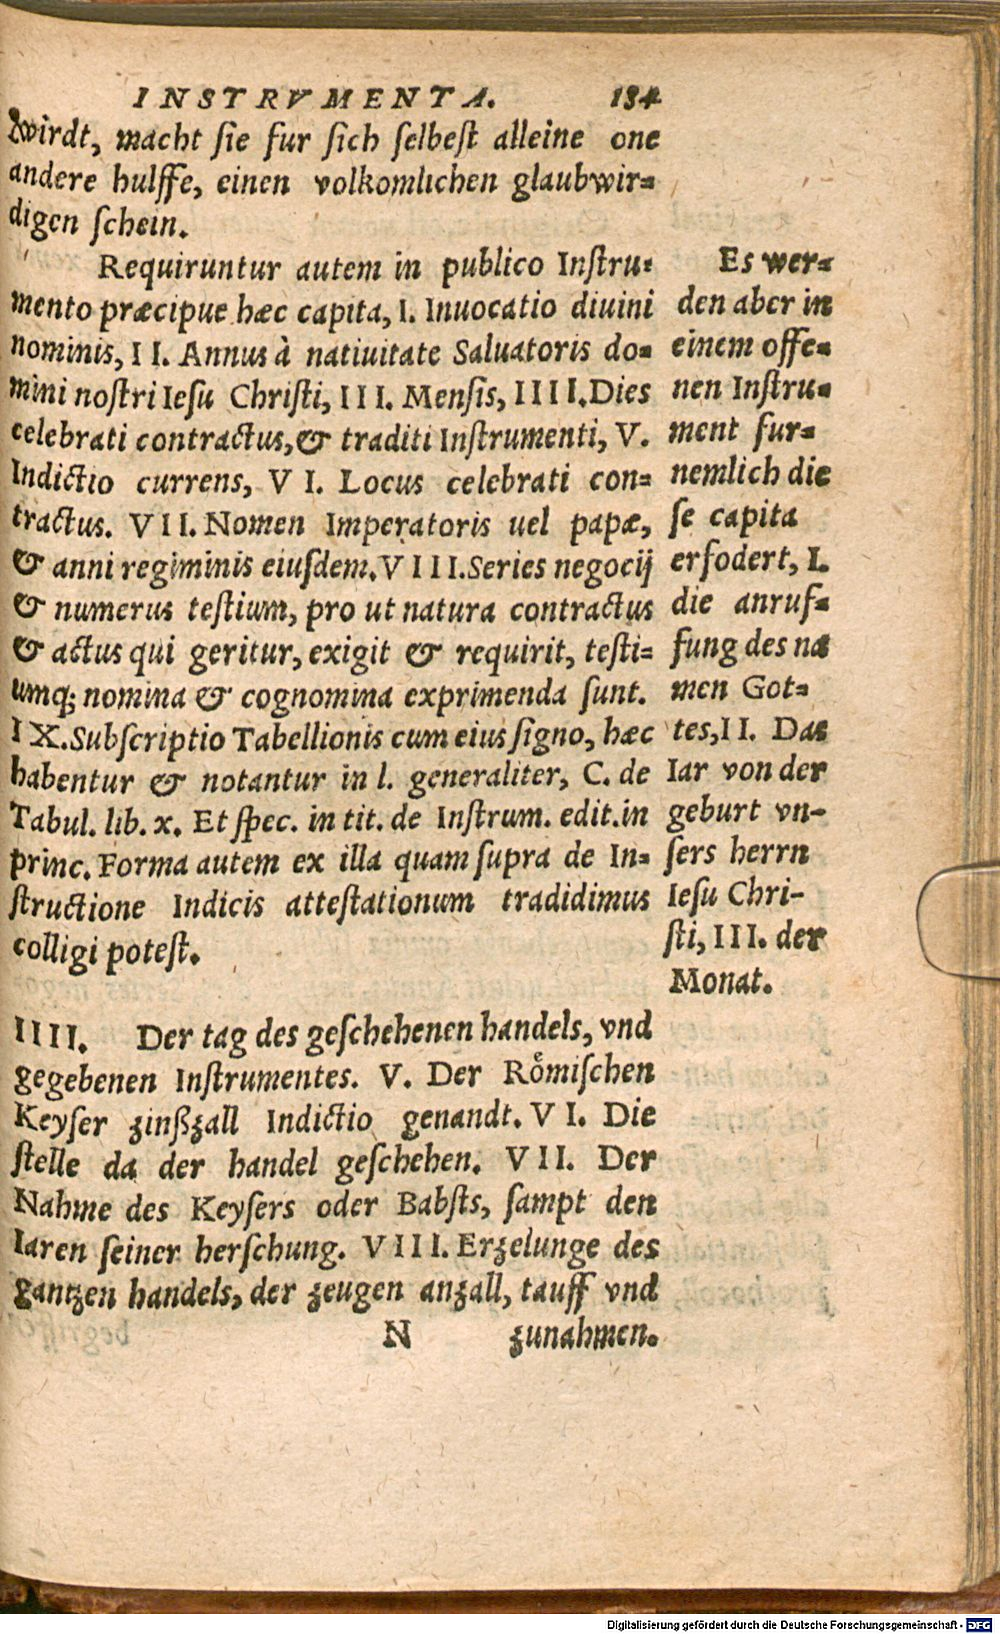 INSTRVMENTA. 134
wirdt, macht sie fur sich selbest alleine one
andere hulffe, einen volkomlichen glaubwir=
digen schein.
Requiruntur autem in publico Instru=
mento præcipue hæc capita, I. Inuocatio diuini
nominis, II. Annus à natiuitate Saluatoris do=
mini nostri Iesu Christi, III. Mensis, IIII. Dies
celebrati contractus, & traditi Instrumenti, V.
Indictio currens, VI. Locus celebrati con=
tractus. VII. Nomen Imperatoris uel papæ,
& anni regiminis eiusdem. VIII. Series negocij
& numerus testium, pro ut natura contractus
& actus qui geritur, exigit & requirit, testi=
umq; nomina & cognomina exprimenda sunt.
IX. Subscriptio Tabellionis cum eius signo, hæc
habentur & notantur in l. generaliter, C. de
Tabul. lib. x. Et spec. in tit. de Instrum. edit. in
princ. Forma autem ex illa quam supra de In=
structione Indicis attestationum tradidimus
colligi potest.
Es wer=
den aber in
einem offe=
nen Instru=
ment fur=
nemlich die
se capita
erfodert, I.
die anruf=
fung des na
men Got=
tes, II. Das
Iar von der
geburt vn-
sers herrn
Iesu Chri-
sti, III. der
Monat.
IIII. Der tag des geschehenen handels, vnd
gegebenen Instrumentes. V. Der Rômischen
Keyser zinßzall Indictio genandt. VI. Die
stelle da der handel geschehen. VII. Der
Nahme des Keysers oder Babsts, sampt den
Iaren seiner herschung. VIII. Erzelunge des
gantzen handels, der zeugen anzall, tauff vnd
N zunahmen.
Digitalisierung gefördert durch die Deutsche Forschungsgemeinschaft - DFG